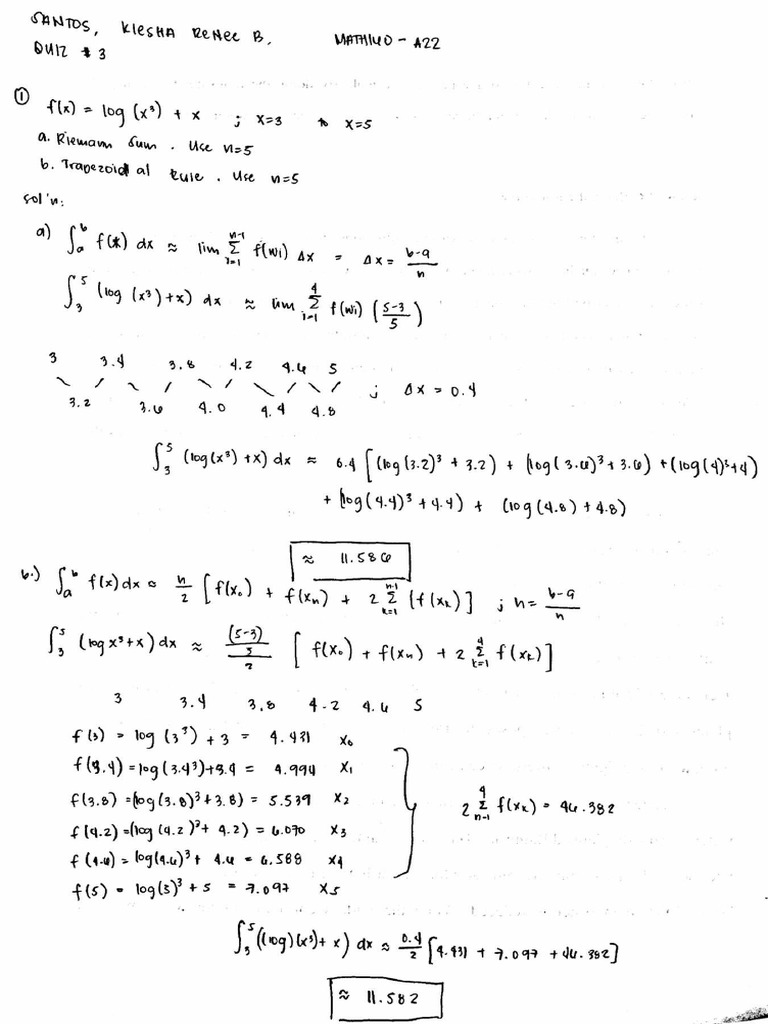 SANTOS, KIESHA RENEE B. MATH140 - A22
QUIZ # 3
① f(x) = log (x³) + x ; x=3 to x=5
a. Riemann Sum. Use n=5
b. Trapezoidal Rule. Use n=5
sol'n:
a) ∫ₐᵇ f(x) dx ≈ lim Σᵢ₌₁ⁿ⁻¹ f(wi) Δx = Δx = (b-a)/n
∫₃⁵ (log (x³)+x) dx ≈ lim Σᵢ₌₁⁴ f(wi) ((5-3)/5)
3 3.4 3.8 4.2 4.6 5
3.2 3.6 4.0 4.4 4.8 ; Δx = 0.4
∫₃⁵ (log(x³)+x) dx ≈ 0.4 [(log(3.2)³ + 3.2) + (log(3.6)³+3.6) + (log(4)³+4)
+ (log(4.4)³ + 4.4) + (log(4.8) + 4.8)
≈ 11.586
b.) ∫ₐᵇ f(x) dx ≈ h/2 [f(x₀) + f(xₙ) + 2 Σₖ₌₁ⁿ⁻¹ (f(xₖ)] ; h = (b-a)/n
∫₃⁵ (logx³+x) dx ≈ ((5-3)/5)/2 [f(x₀) + f(xₙ) + 2 Σₖ₌₁⁴ f(xₖ)]
3 3.4 3.8 4.2 4.6 5
f(3) = log (3³) + 3 = 4.431 x₀
f(3.4) = log(3.4³)+3.4 = 4.994 x₁
f(3.8) = (log(3.8)³+3.8) = 5.539 x₂
f(4.2) = (log(4.2)³+ 4.2) = 6.070 x₃
f(4.6) = log(4.6)³+ 4.6 = 6.588 x₄
f(5) = log(5)³ + 5 = 7.097 x₅
2 Σₙ₋₁⁴ f(xₖ) = 46.382
∫₃⁵ ((log)(x³)+ x) dx ≈ 0.4/2 [4.431 + 7.097 + 46.382]
≈ 11.582